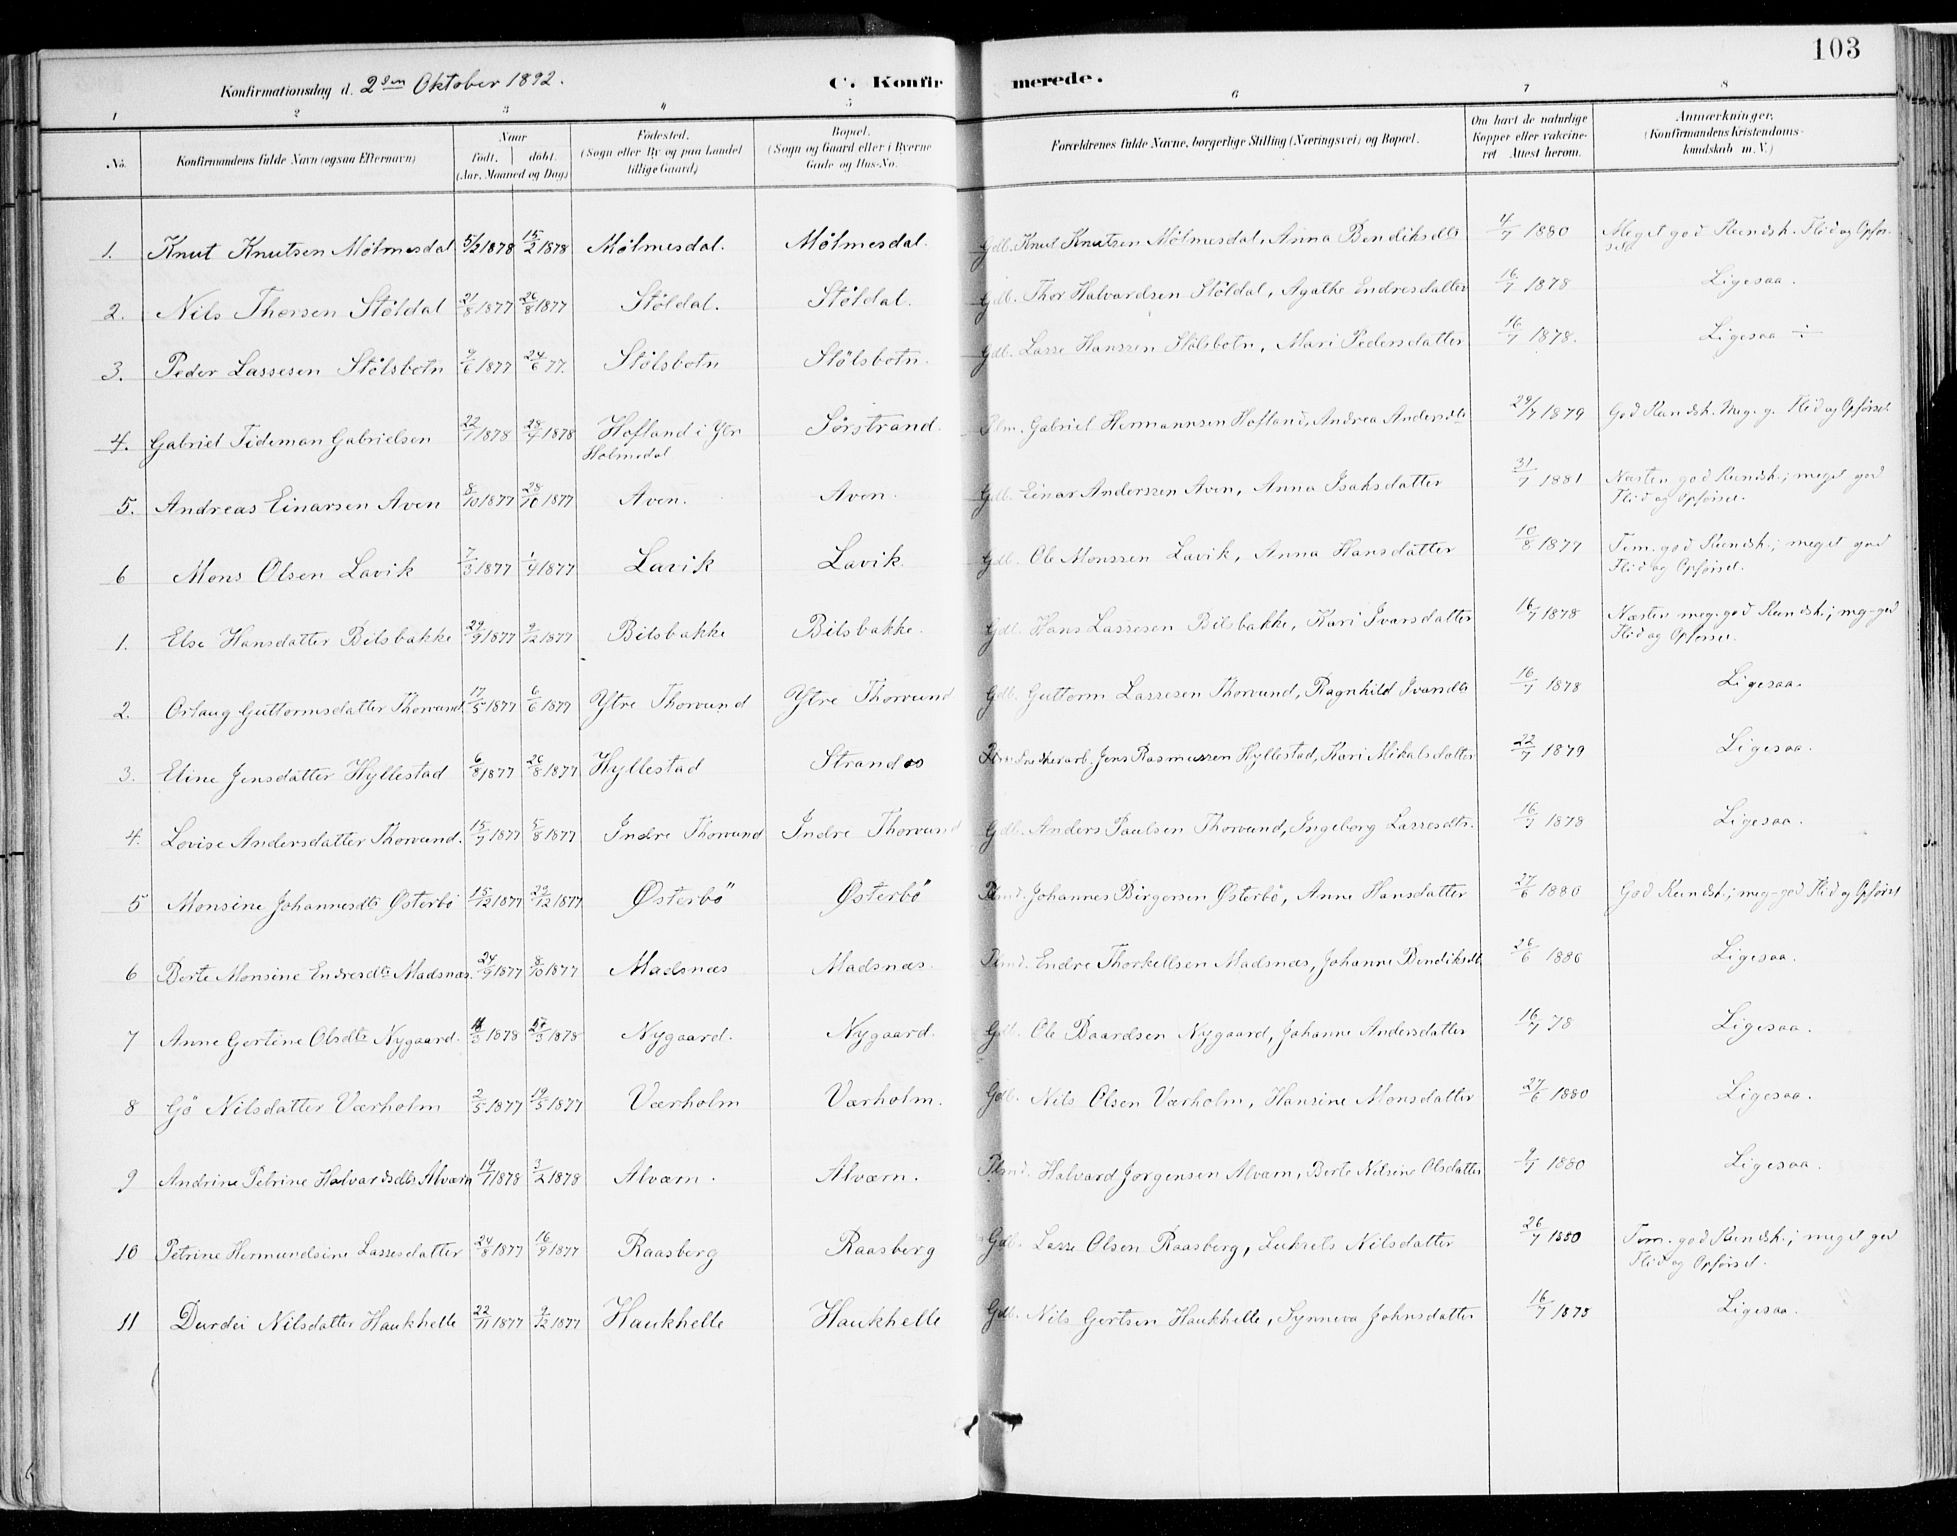 103
Konfirmationsdag d. 2den Oktober 1892. C. Konfirmerede.
1 2 3 4 5 6 7 8
No. Konfirmandens fulde Navn (ogsaa Efternavn) Naar født, døbt. (Aar, Maaned og Dag) Fødested. (Sogn eller By og paa Landet tillige Gaard) Bopæl. (Sogn og Gaard eller i Byerne Gade og Hus-No. Forældrenes fulde Navne, borgerlige Stilling (Næringsvei) og Bopæl. Om havt de naturlige Kopper eller vakcineret Attest herom. Anmærkninger. (Konfirmandens Kristendomskundskab m. V.)
1. Knut Knutsen Mølmesdal 5/2 1878 15/2 1878 Mølmesdal. Mølmesdal. Gdb. Knut Knutsen Mølmesdal, Anna Bendiksdtr 4/7 1880 Meget god Kundsk. Flid og Opførsel
2. Nils Thorsen Støldal 21/8 1877 26/8 1877 Støldal. Støldal. Gdb. Thor Halvardsen Støldal, Agathe Endresdatter 16/7 1878 Ligesaa.
3. Peder Lassesen Stølsbotn 9/6 1877 24/6 77. Stølsbotn Stølsbotn. Gdb. Lasse Hanssen Stølsbotn, Mari Pedersdatter 16/7 1878. Ligesaa ÷
4. Gabriel Tideman Gabrielsen 22/7 1878 28/7 1878 Hofland i Ytr Holmedal Sørstrand. Plm. Gabriel Hermannsen Hofland, Andrea Andersdtr 29/7 1879 God Kundsk. Meg. g. Flid og Opførsel.
5. Andreas Einarsen Aven 8/10 1877 28/10 1877 Aven. Aven. Gdb. Einar Anderssen Aven, Anna Isaksdatter 31/7 1881 Næsten god Kundsk.; meget god Flid og Opførsel.
6 Mons Olsen Lavik 7/3 1877 1/4 1877 Lavik Lavik Gdb. Ole Monssen Lavik, Anna Hansdatter 10/8 1877 Tem. god Kundsk.; meget god Flid og Opførsel.
1. Else Hansdatter Bilsbakke 29/9 1877 9/12 1877 Bilsbakke Bilsbakke. Gdb. Hans Lassesen Bilsbakke, Kari Ivarsdatter 16/7 1878 Næsten meg. god Kundsk.; meg-god Flid og Opførsel.
2. Orlaug Guttormsdatter Thorvund. 17/5 1877 6/6 1877 Ytre Thorvund Ytre Thorvund Gdb. Guttorm Lassesen Thorvund, Ragnhild Ivarsdtr 16/7 1878 Ligesaa.
3. Eline Jensdatter Hyllestad 6/8 1877 26/8 1877 Hyllestad Strandos Jens Rasmussen Hyllestad, Kari Mikalsdatter 22/7 1879 Ligesaa.
4. Lovise Andersdatter Thorvund. 15/7 1877 5/8 1877 Indre Thorvund Indre Thorvund Gdb. Anders Paulsen Thorvund, Ingeborg Lassesdtr. 16/7 1878 Ligesaa.
5 Monsine Johannesdtr Østerbø 15/12 1877 29/12 1877 Østerbø Østerbø Plmd. Johannes Birgersen Østerbø, Anne Hansdatter 27/6 1880 God Kundsk.; meg-god Flid og Opførsel
6 Berte Monsine Endresdtr Madsnæs. 24/9 1877 8/10 1877 Madsnæs Madsnæs. Plmd. Endre Thorkellsen Madsnæs, Johanne Bendiksdtr 26/6 1886 Ligesaa.
7 Anne Gertine Olsdtr Nygaard. 11/3 1878 17/3 1878 Nygaard. Nygaard. Gdb. Ole Baardsen Nygaard, Johanne Andersdatter 16/7 78 Ligesaa.
8 Gø Nilsdatter Værholm 2/5 1877 19/5 1877 Værholm Værholm. Gdb. Nils Olsen Værholm, Hansine Monsdatter 27/6 1880 Ligesaa.
9 Andrine Petrine Halvardsdtr Alværn 19/1 1878 3/2 1878 Alværn. Alværn. Plmd. Halvard Jørgensen Alværn, Berte Nilsine Olsdatter 9/7 1880 Ligesaa.
10 Petrine Hermundsine Lassesdatter 24/8 1877 16/9 1877 Raasberg Raasberg Gdb. Lasse Olsen Raasberg, Lukrets Nilsdatter 26/7 1880 Tem. god Kundsk.; meget god Flid og Opførsel.
11 Durdei Nilsdatter Haukhelle 22/11 1877 9/12 1877 Haukhelle Haukhelle Gdb. Nils Gertsen Haukhelle, Synneva Johnsdatter 16/7 1878 Ligesaa.